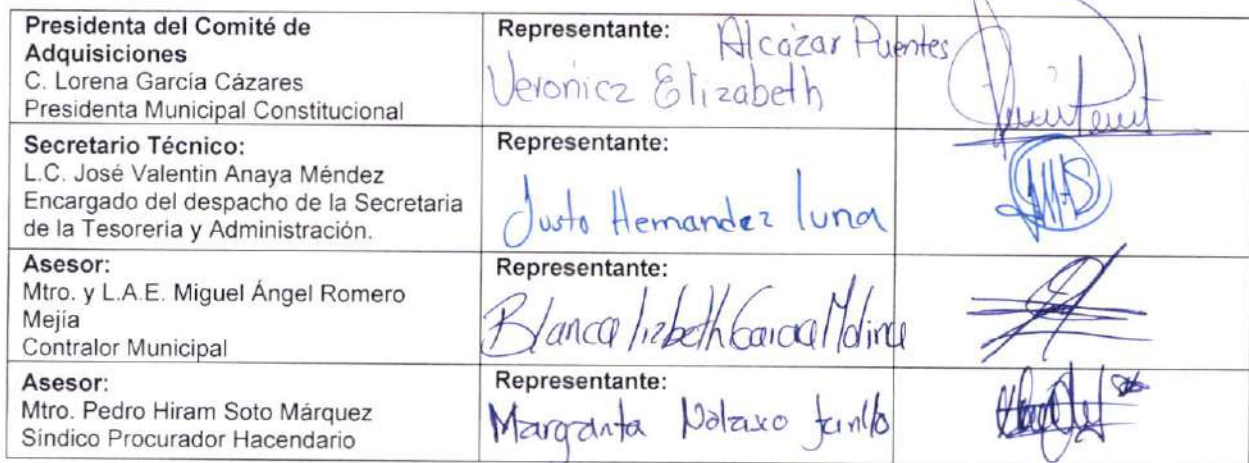 Presidenta del Comité de
Adquisiciones
C. Lorena García Cázares
Presidenta Municipal Constitucional
Representante:
Alcázar Puentes
Veronica Elizabeth
Secretario Técnico:
L.C. José Valentin Anaya Méndez
Encargado del despacho de la Secretaria
de la Tesorería y Administración.
Representante:
Justo Hernandez luna
Asesor:
Mtro. y L.A.E. Miguel Ángel Romero
Mejía
Contralor Municipal
Representante:
Blanca lizbeth Garcia Molina
Asesor:
Mtro. Pedro Hiram Soto Márquez
Síndico Procurador Hacendario
Representante:
Margarita